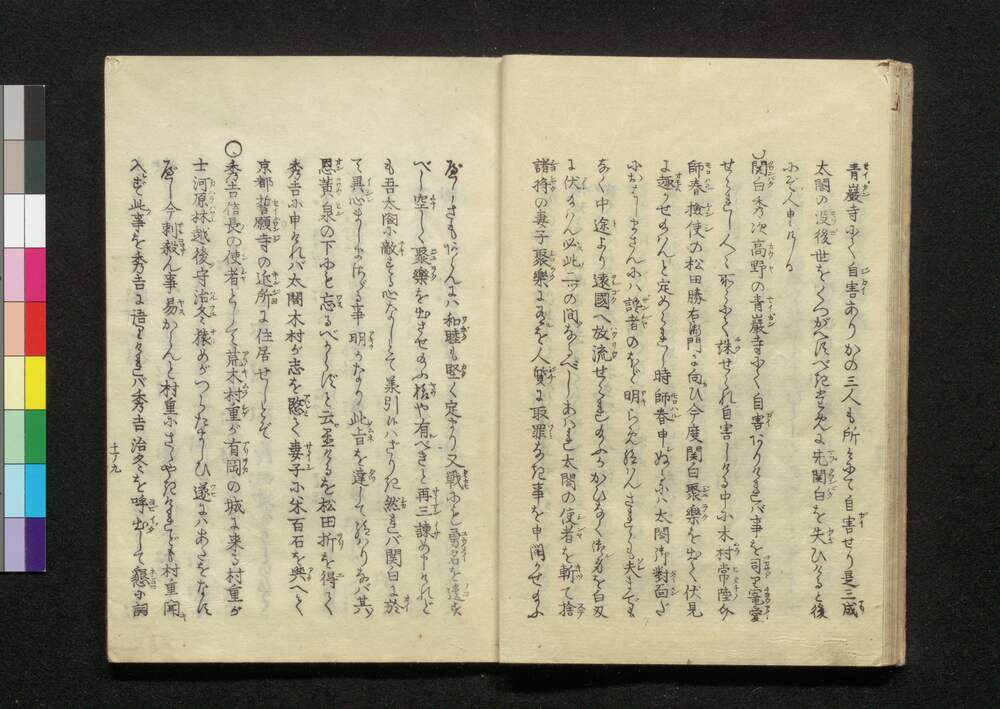 青巖寺にて自害ありかの三人も所々にて自害せり是三成
太閤の没後世をくつがへすべき玄に先関白を失ひけると後
にぞ人申ける
関白秀次高野の青巖寺にて自害ありければ事を司る寵愛
せられし人々所々にて誅せられ自害しける中に木村常陸介
師春檢使の松田勝右衛門に向ひ今度関白聚樂を出て伏見
に趣かせ給はんと定められし時師春申ぬるは太閤御對面だ
におはしまさんには讒者のほど明らめ給はんされども夫までも
なく中途より遠國へ放流せられ給ふかひなく御首を白刃
に伏給はん必此二ツの間なるべしあはれ太閤の使者を斬て捨
諸将の妻子聚樂にあるを人質に取罪なき事を申開かせ給ふ
ほどならば和睦も堅く定まり又戦ふとも勇名を遠き
べし空しく聚樂を出させ給ふ樣や有べきと再三諌め申けれど
も吾太閤に敵する心なしとて承引にはざりき然れバ関白に於
て異心ましまさざる事明らかなり此旨を達して給はりなバ其
恩黄泉の下にも忘るべからずと云置けるを松田折を得て
秀吉に申けれバ太閤木村が志を愍て妻子に米百石を與へて
京都誓願寺の近所に住居せしとぞ
〇秀吉信長の使者として荒木村重が有岡の城に来る村重が
士河原林越後守治冬猿めがつらたましひ遂にはあたをなす
べし今刺殺ん事易からんと村重にささやきけれども村重聞
入ず此事を秀吉に語りければ秀吉治冬を呼出して懇に詞
十ノ九